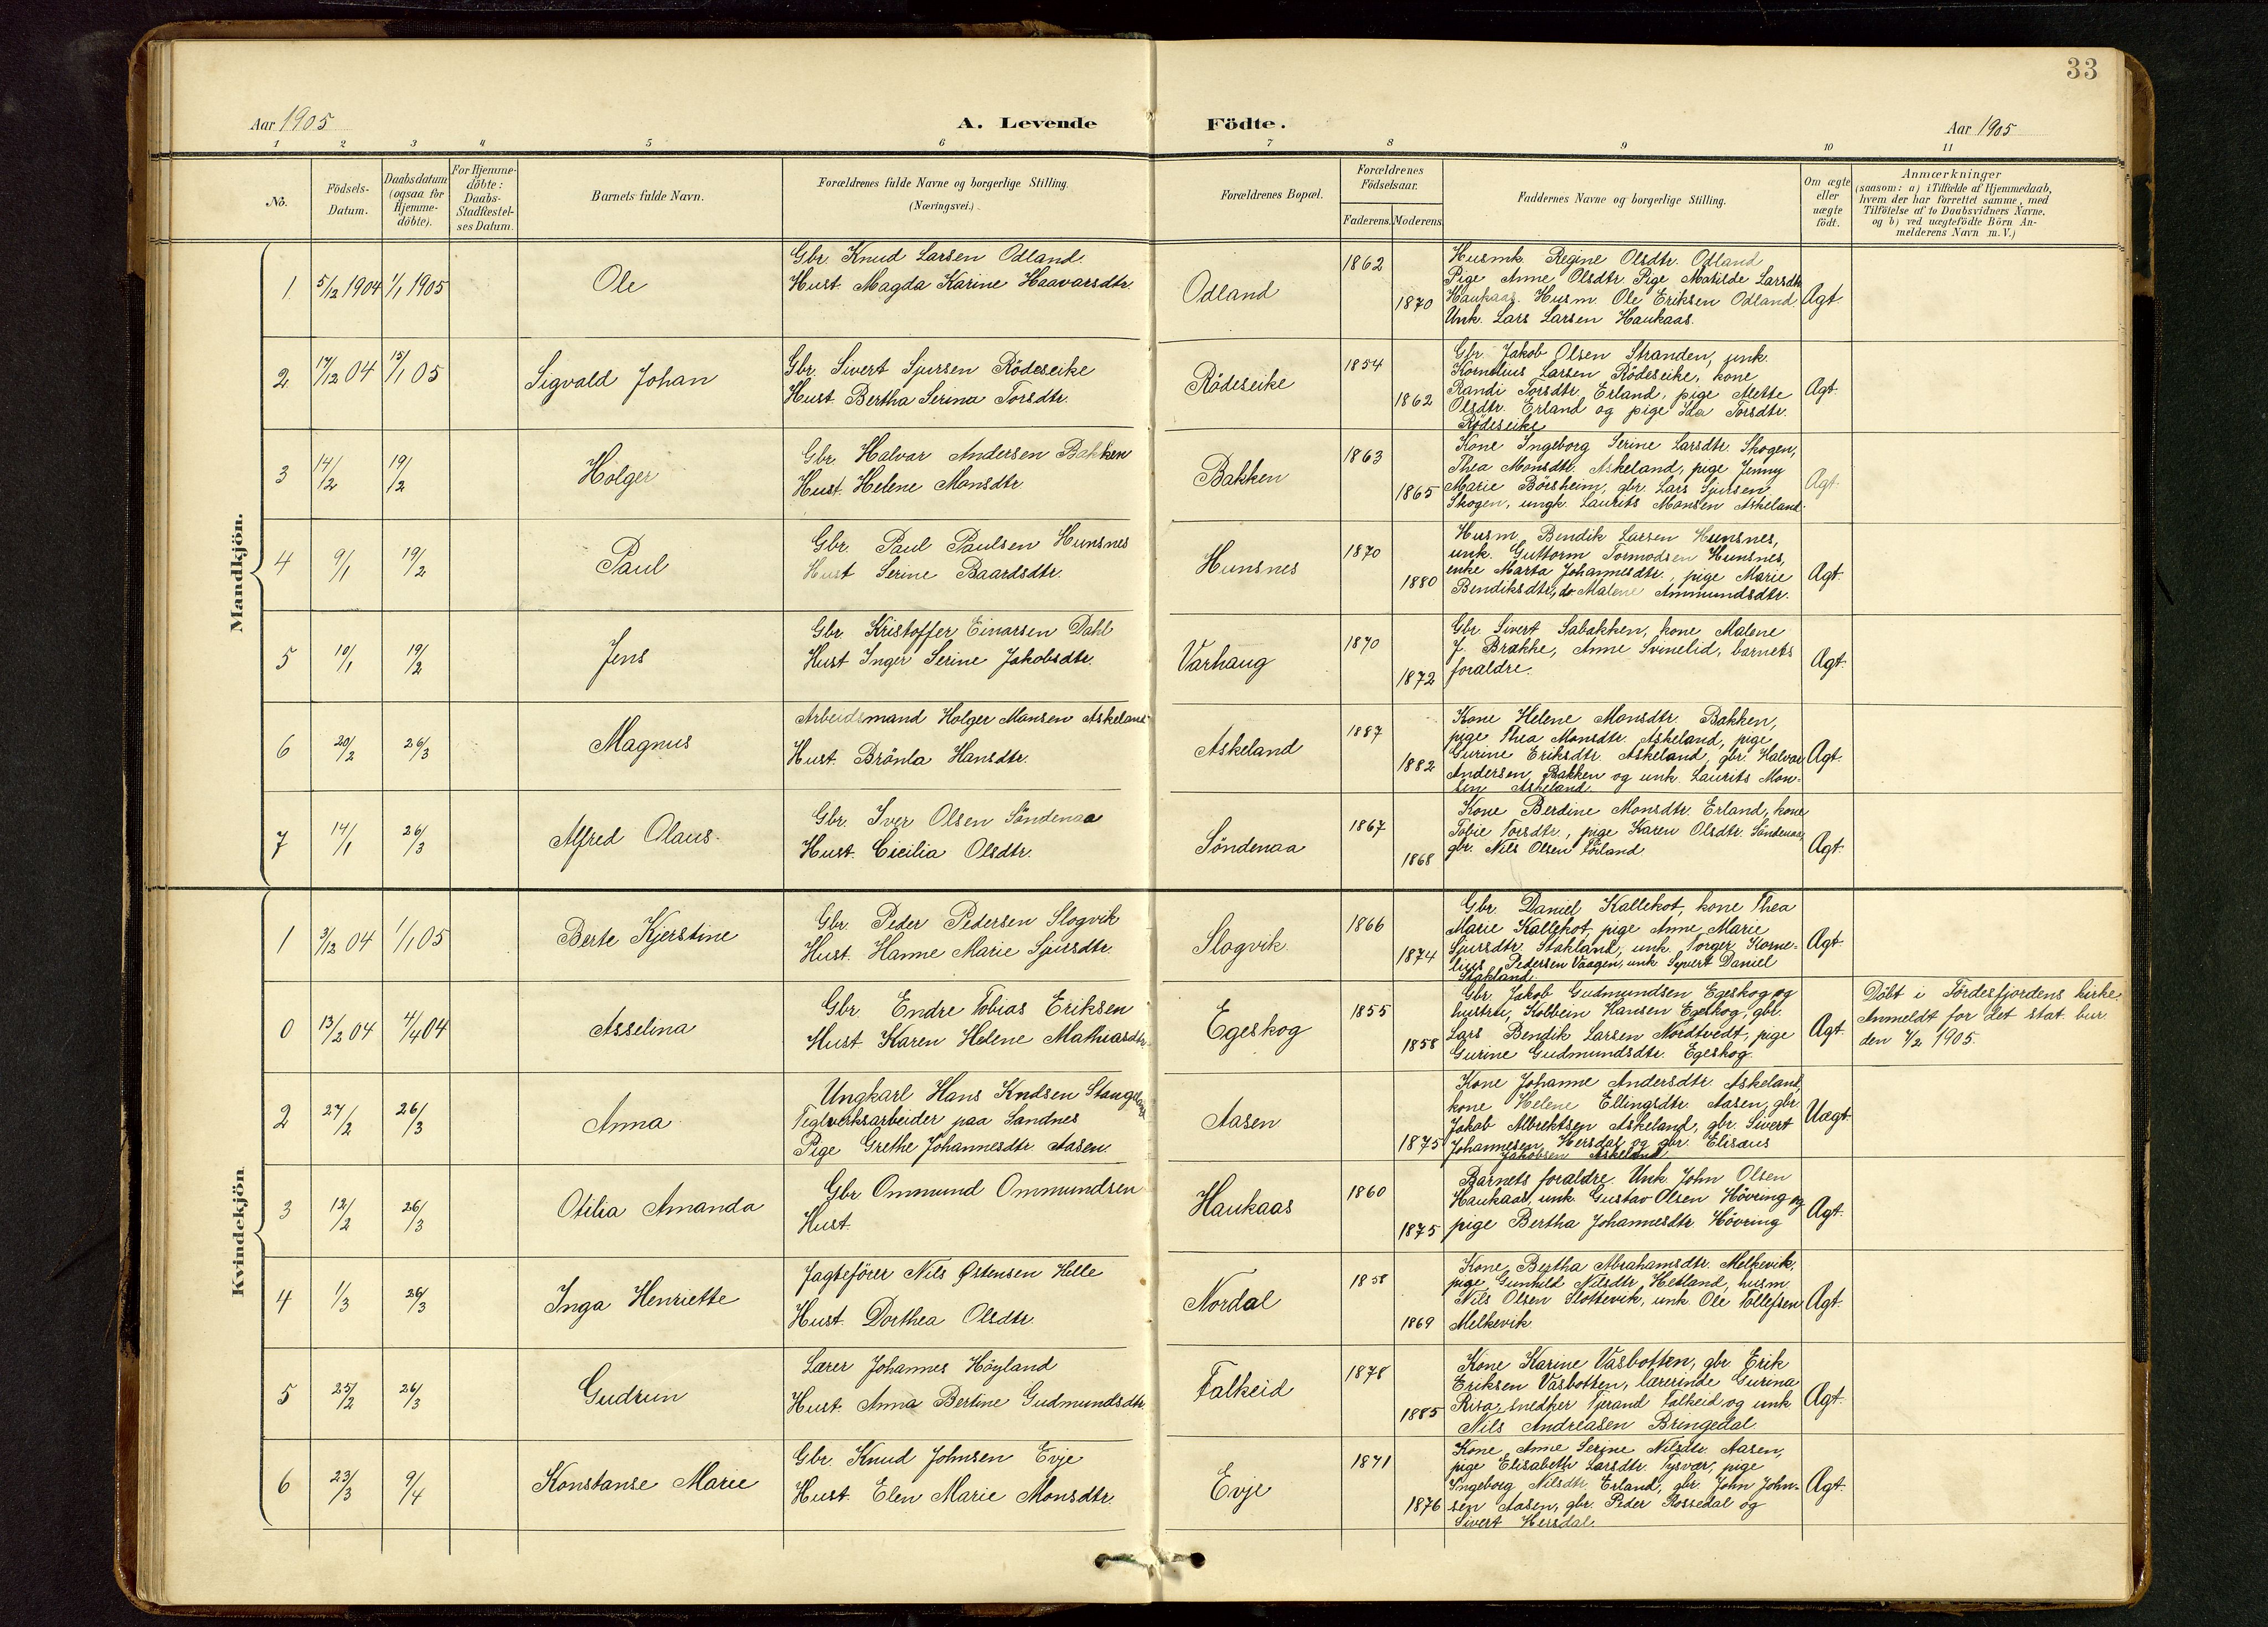 33
Aar 1905
A. Levende Födte.
Aar 1905
1 2 3 4 5 6 7 8 9 10 11
No.
Födsels-Datum.
Daabsdatum (ogsaa for Hjemme-döbte).
For Hjemme-döbte: Daabs-Stadfæstel-ses Datum.
Barnets fulde Navn.
Forældrenes fulde Navne og borgerlige Stilling. (Næringsvei.)
Forældrenes Bopæl.
Forældrenes Födselsaar.
Faderens. Moderens
Faddernes Navne og borgerlige Stilling.
Om ægte eller uægte födt.
Anmærkninger
(saasom: a) i Tilfælde af Hjemmedaab,
hvem der har forrettet samme, med
Tilföielse af to Daabsvidners Navne.
og b) ved uægtefödte Börn An-
melderens Navn m. V.)
Mandkjön.
1 5/12 1904 1/1 1905 Ole
Gbr. Knud Larsen Odland.
Hust. Magda Karine Haavarsdtr.
Odland 1862 1870
Husmk. Regine Olsdtr. Odland
Pige Anne Olsdtr Pige Matilde Larsdtr
Haukaas. Husm. Ole Eriksen Odland.
Unk. Lars Larsen Haukaas.
Ægt.
2 17/12 04 15/1 05 Sigvald Johan
Gbr. Sivert Sjursen Rödeseike
Hust. Bertha Serina Torsdtr.
Rödeseike 1854 1862
Gbr. Jakob Olsen Stranden, unk.
Kornelius Larsen Rödeseike, kone
Randi Torsdtr. Erland, pige Mette
Olsdtr. Erland og pige Ida Torsdtr.
Rödeseike
Ægt.
3 14/2 19/2 Holger
Gbr. Halvar Andersen Bakken
Hust. Helene Monsdtr
Bakken 1863 1865
Kone Ingeborg Serine Larsdtr. Skogen,
Thea Monsdtr. Askeland, pige Jenny
Marie Börsheim, gbr. Lars Sjursen
Skogen, ungk. Laurits Monsen Askeland.
Ægt.
4 9/1 19/2 Paul
Gbr. Paul Paulsen Hunsnes
Hust Serine Baardsdtr.
Hunsnes 1870 1880
Husm. Bendik Larsen Hunsnes,
unk. Guttorm Tormodsen Hunsnes,
enke Marta Johannesdtr., pige Marie
Bendiksdtr, do Malene Ammundsdtr.
Ægt.
5 10/1 19/2 Jens
Gbr. Kristoffer Einarsen Dahl
Hust Inger Serine Jakobsdtr.
Varhaug 1870 1872
Gbr. Sivert Sabakken, kone Malene
J. Brække, Anne Svinelid, barnets
forældre.
Ægt.
6 20/2 26/3 Magnus
Arbeidsmand Holger Monsen Askeland
Hust. Brönla Hansdtr.
Askeland 1887 1882
Kone Helene Monsdtr. Bakken,
pige Thea Monsdtr. Askeland, pige
Gurine Eriksdtr. Askeland, gbr. Halvar
Andersen Bakken og unk. Laurits Mon-
sen Askeland.
Ægt.
7 14/1 26/3 Alfred Olaus.
Gbr. Iver Olsen Söndenaa
Hust. Cicilia Olsdtr.
Söndenaa 1867 1868
Kone Berdine Monsdtr. Erland, kone
Tobie Torsdtr., pige Karen Olsdtr. Söndenaa,
gbr. Nils Olsen
Ægt.
Kvindekjön
1 3/12 04 1/1 05 Berte Kjerstine
Gbr. Peder Pedersen Slogvik
Hust. Hanne Marie Sjursdtr.
Slogvik. 1866 1874
Gbr. Daniel Kallekot, kone Thea
Marie Kallekot, pige Anne Marie
Sjursdtr. Stakland, unk. Torger Korne-
lius Pedersen Vaagen, unk Syvert Daniel
Stakland.
Ægt.
0 13/2 04 4/4 04 Asselina
Gbr. Endre Tobias Eriksen
Hust. Karen Helene Mathiasdtr.
Egeskog 1855 1858
Gbr. Jakob Gudmundsen Egeskog og
hustru, Kolbein Hansen Egeskog, gbr.
Lars Bendik Larsen Nordtvedt, pige
Gurine Gudmundsdtr. Egeskog.
Ægt.
Döbt i Fördesfjordens kirke.
Anmeldt for det stat. bur.
den 4/2 1905.
2 27/2 26/3 Anna
Ungkarl Hans Kndsen Stangeland
Teglverksarbeider paa Sandnes
Pige Grethe Johannesdtr. Aasen.
Aasen 1875
Kone Johanne Andersdtr. Askeland,
kone Helene Ellingsdtr. Aasen, gbr.
Jakob Albrektsen Askeland, gbr. Sivert
Johannesen Hersdal og gbr. Elisæus
Jakobsen Askeland
Uægt.
3 12/2 26/3 Otilia Amanda
Gbr Ommund Ommundsen
Hust.
Haukaas 1860 1875
Barnets forældre. Unk. John Olsen
Haukaas, unk. Gustav Olsen Hövring og
pige Bertha Johannesdtr Hövring
Ægt.
4 1/3 26/3 Inga Henriette
Jagtefører Nils Østensen Helle
Hust. Dorthea Olsdtr.
Nordal 1858 1869
Kone Bertha Abrahamsdtr. Melkevik,
pige Gunhild Nilsdtr. Hetland, husm.
Nils Olsen Slottevik, unk. Ole Tollefsen
Melkevik
Ægt.
5 25/2 26/3 Gudrun
Lærer Johannes Höyland
Hust. Anna Bertine Gudmundsdtr.
Falkeid 1878 1885
Kone Karine Vasbotten, gbr Erik
Eriksen Vasbotten, lærerinde Gurina
Risa, snedker Tjerand Falkeid og unk
Nils Andreasen Bringedal
Ægt.
6 23/3 9/4 Konstanse Marie
Gbr. Knud Johnsen Evje
Hust. Elen Marie Monsdtr.
Evje 1871 1876
Kone Anne Serine Nilsdtr. Aasen,
pige Elisabeth Larsdtr. Tysvær, pige
Ingeborg Nilsdtr. Erland, gbr. John John-
sen Aasen, gbr. Peder Rossedal og
Sivert Hersdal.
Ægt.